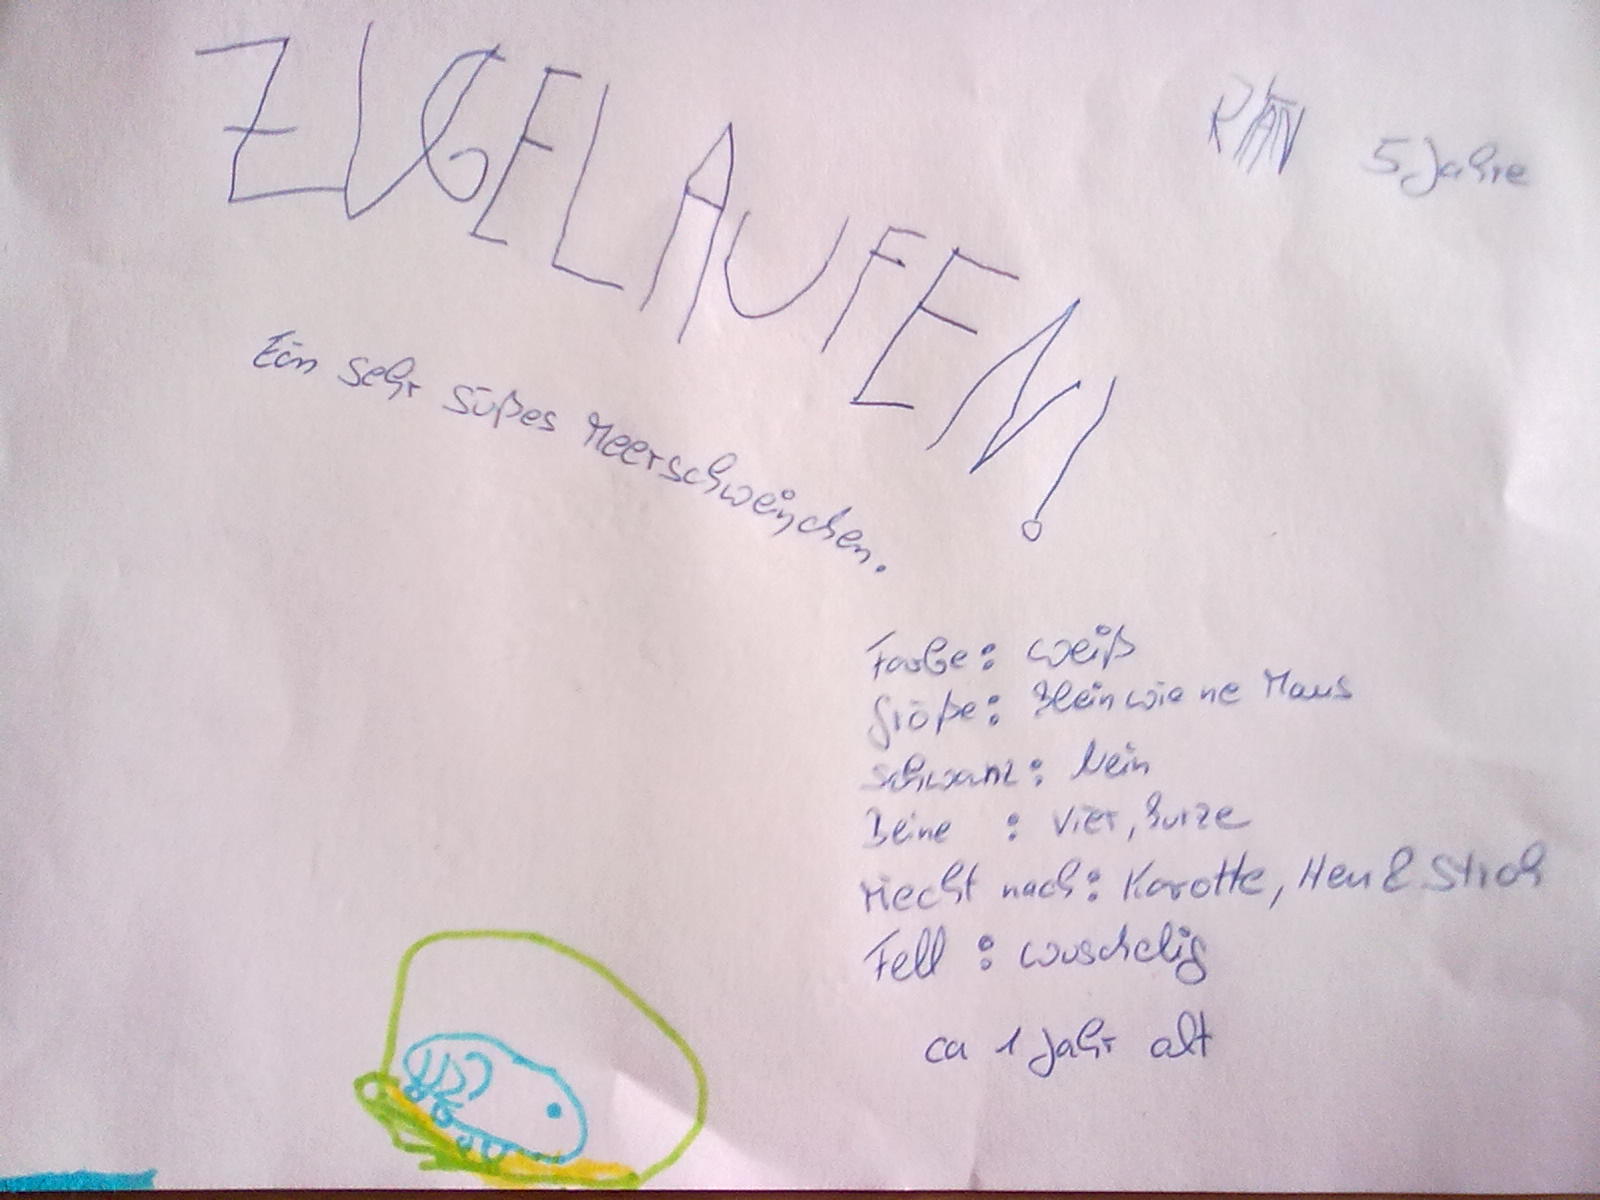 ZUGELAUFEN!
5 Jahre
Ein sehr süßes Meerschweinchen.
Farbe: weiß
Größe: klein wie ne Maus
Schwanz: Nein
Beine : Vier, kurze
riecht nach: Karotte, Heu & Stroh
Fell : wuschelig
ca 1 Jahr alt